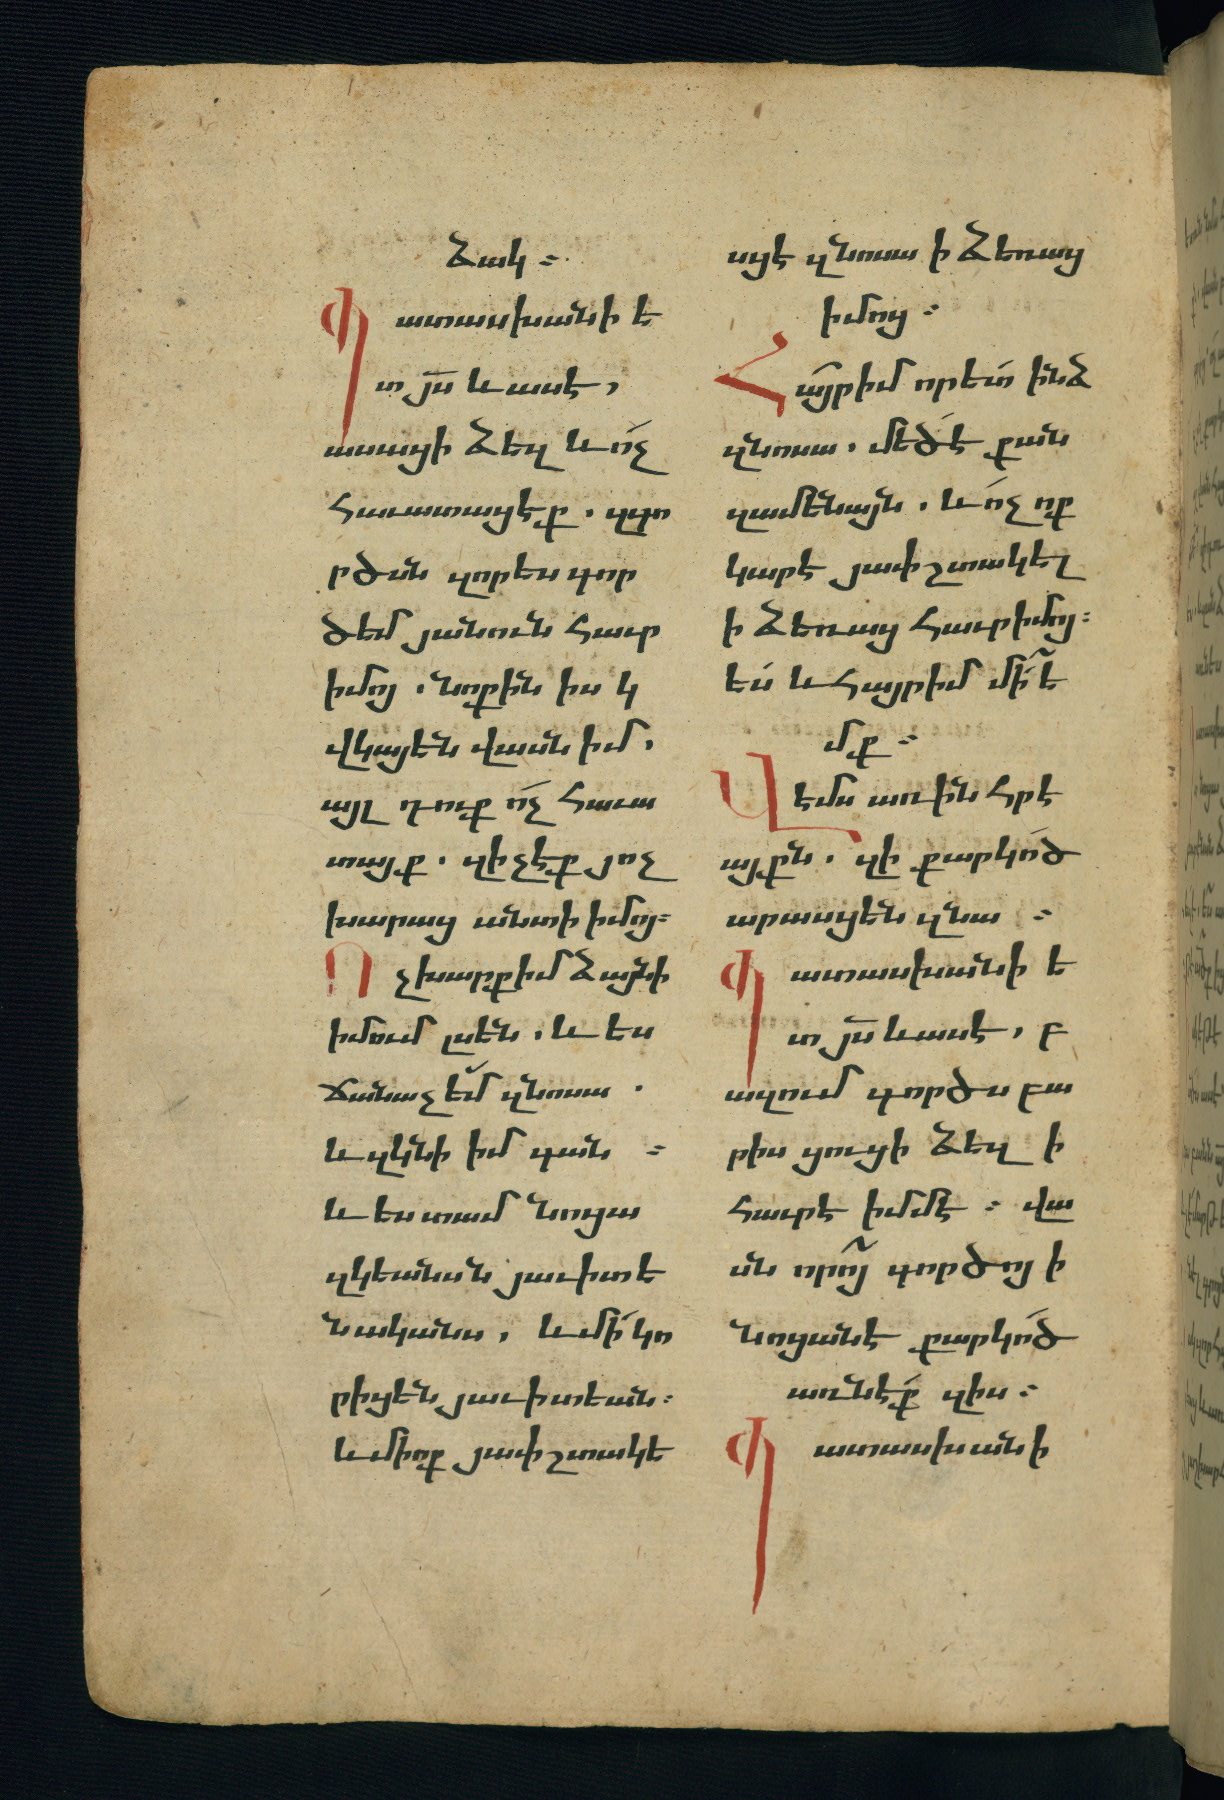 ձակ։
Պատասխանի ե
տ յս և ասէ,
ասացի ձեզ և ոչ
հաւատացէք. զգո
րծսն զորես գոր
ծեմ յանուն հաւր
իմոյ. նոքին իսկ
վկայեն վասն իմ.
այլ դուք ոչ հաւա
տայք. զի չէք յոչ
խարաց անտի իմոյ։
Ոչխարքիմ ձայնի
իմում լսեն. և ես
ճանաչեմ զնոսա.
և զկնի իմ գան։
և ես տամ նոցա
զկեանսն յաւիտե
նականս, և մի կո
րիցեն յաւիտեան։
և մի ոք յափշտակե
սցէ զնոսա ի ձեռաց
իմոց։
Հայրիմ որետ ինձ
զնոսա. մեծ է քան
զամենայն. և ոչ ոք
կարէ յափշտակել
ի ձեռաց հաւրիմոյ։
ես և հայրիմ մի ե
մք։
Վէմս առին հրէ
այքն. զի քարկոծ
արասցեն զնա։
Պատասխանի ե
տ յս և ասէ, բ
ազում գործս բա
րիս ցուցի ձեզ ի
հաւրէ իմմէ։ վա
սն որոյ գործոյ ի
նոցանէ քարկոծ
առնէք զիս։
Պատասխանի